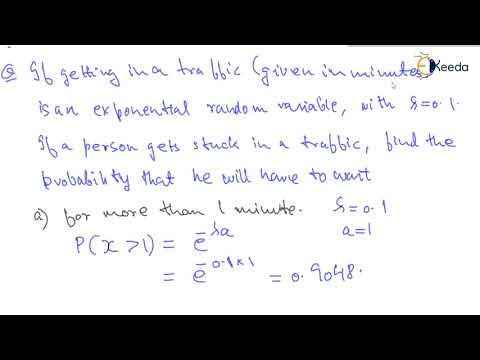 Keeda
Q If getting in a traffic (given in minutes)
is an exponential random variable, with λ=0.1.
If a person gets stuck in a traffic, find the
probability that he will have to wait
a) for more than 1 minute. λ=0.1
P(x>1) = e^-λa a=1
= e^-0.1×1 = 0.9048.